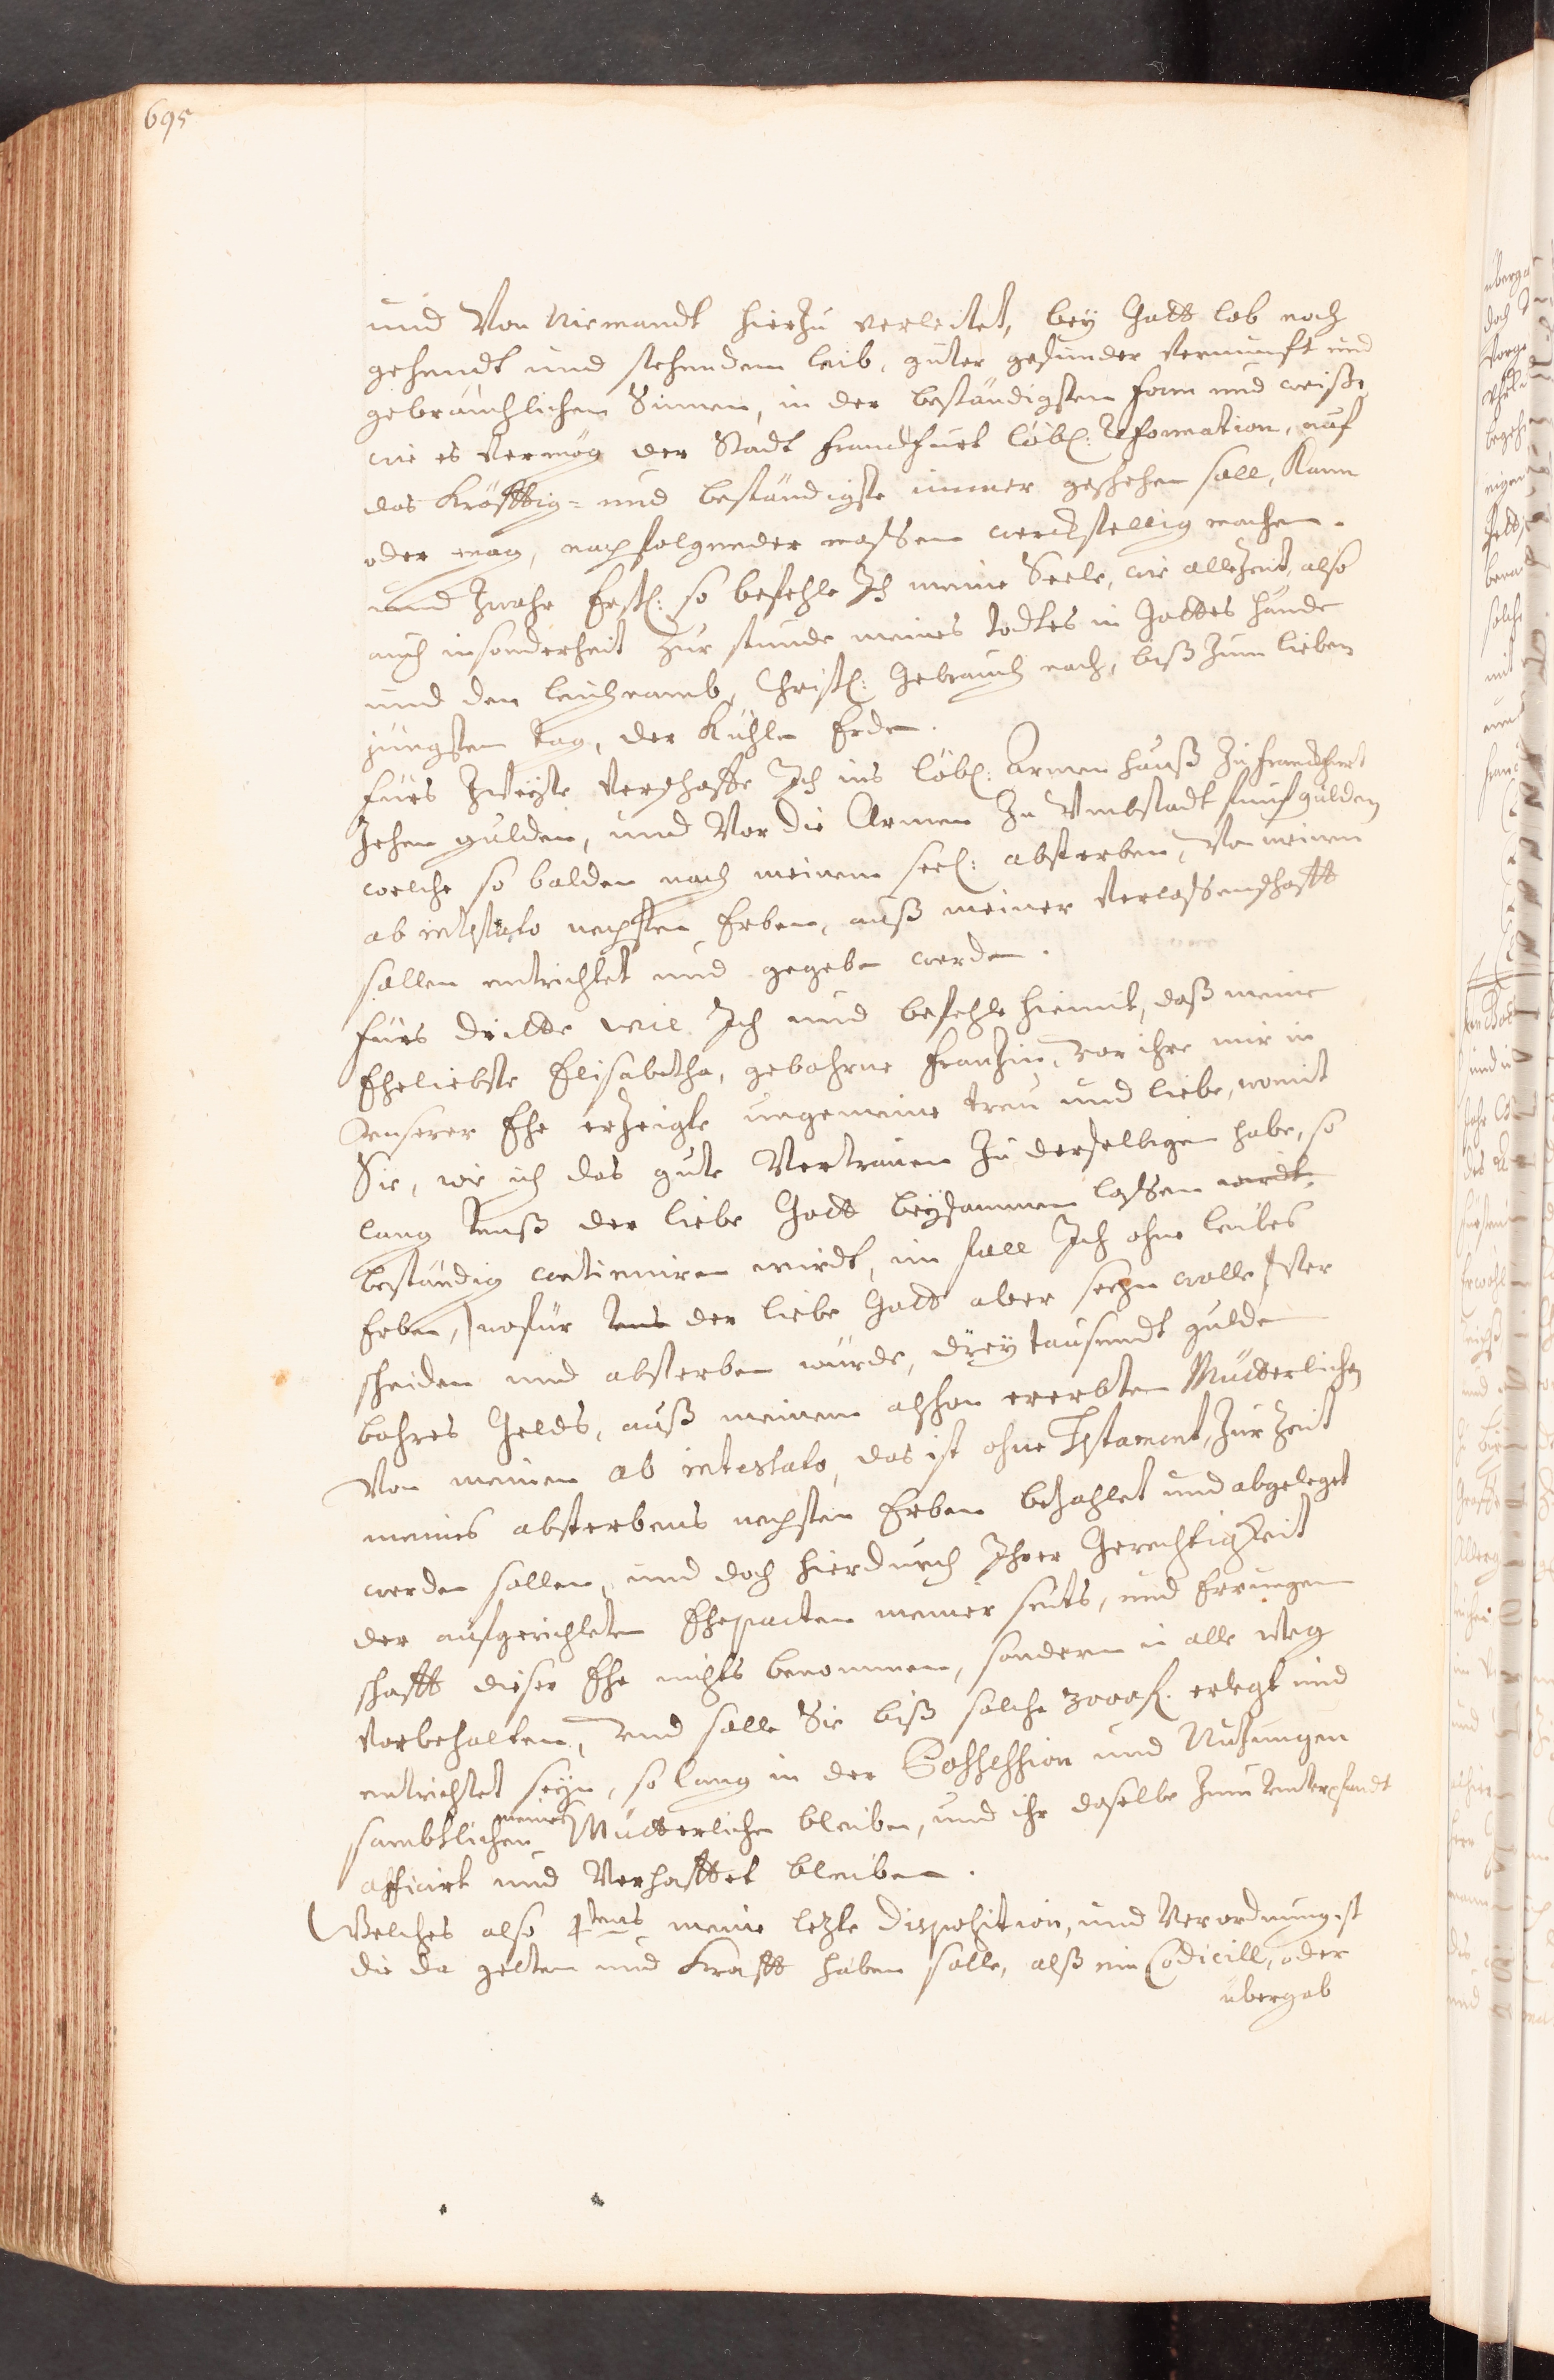 695
und Von Niemandt hierzu verleitet, bey Gott lob noch
gehendt und stehendem leib, guter gesunder Vernunft und
gebräuchlichen Sinnen, in der beständigsten form und weiße
wie es Vermög der Stadt Franckfurt löbl: Reformation, auf
das Kräfftig- und beständigste immer geschehen soll, Kann
oder mag, nachfolgender massen werckstellig machen.
und zwahr Erstl: so befehle Ich meine Seele, wie allezeit, also
auch insonderheit zur stunde meines todtes in Gottes hände
und den leichnamb, Christl: Gebrauch nach, biß zum lieben
jüngsten tag, der Kühlen Erden.
fürs Zweyte Verschaffe Ich ins löbl: Armen hauß zu Franckfurt
zehen gulden, und Vor die Armen zu Umbstadt funf gulden
welche so balden nach meinem seel: absterben, Von meinen
ab intestato nechsten Erben, auß meiner Verlassenschafft
sollen entrichtet und gegeben werden.
fürs dritte wil Ich und befehle hiemit, daß meine
Eheliebste Elisabetha, gebohrne Frantzin, vor ihre mir in
Unserer Ehe erzeigte ungemeine treu und liebe, womit
Sie, wie ich das gute Vertrauen zu derselbigen habe, so
lang Unß der liebe Gott beysammen lassen wirdt,
beständig continuiren wirdt, im fall Ich ohne leibes
Erben, /: wofür Uns der liebe Gott aber seyn wolle :/ Ver
scheiden und absterben würde, drey tausendt gulden
bahres Gelds, auß meinem alschon ererbten Mütterlichen
Von meinen ab intestato, das ist ohne Testament, zur Zeit
meines absterbens nechsten Erben bezahlet und abgeleget
werden sollen, und doch hierdurch Ihrer Gerechtigkeit
der aufgerichteten Ehepacten meiner seits, und Errungen
schafft dieser Ehe nichts benommen, sondern in alle Weg
Vorbehalten, Und solle Sie biß solche 3000 fl. erlegt und
entrichtet seyn, so lang in der Possession und Nutzungen
sambtlichen meines Mütterlichen bleiben, und ihr dasselbe zum Unterpfandt
afficirt und Verhafftet bleiben.
Welches also 4tens meine letzte Disposition, und Verordnung ist
die da gelten und Krafft haben solle, alß ein Codicill, oder
übergab